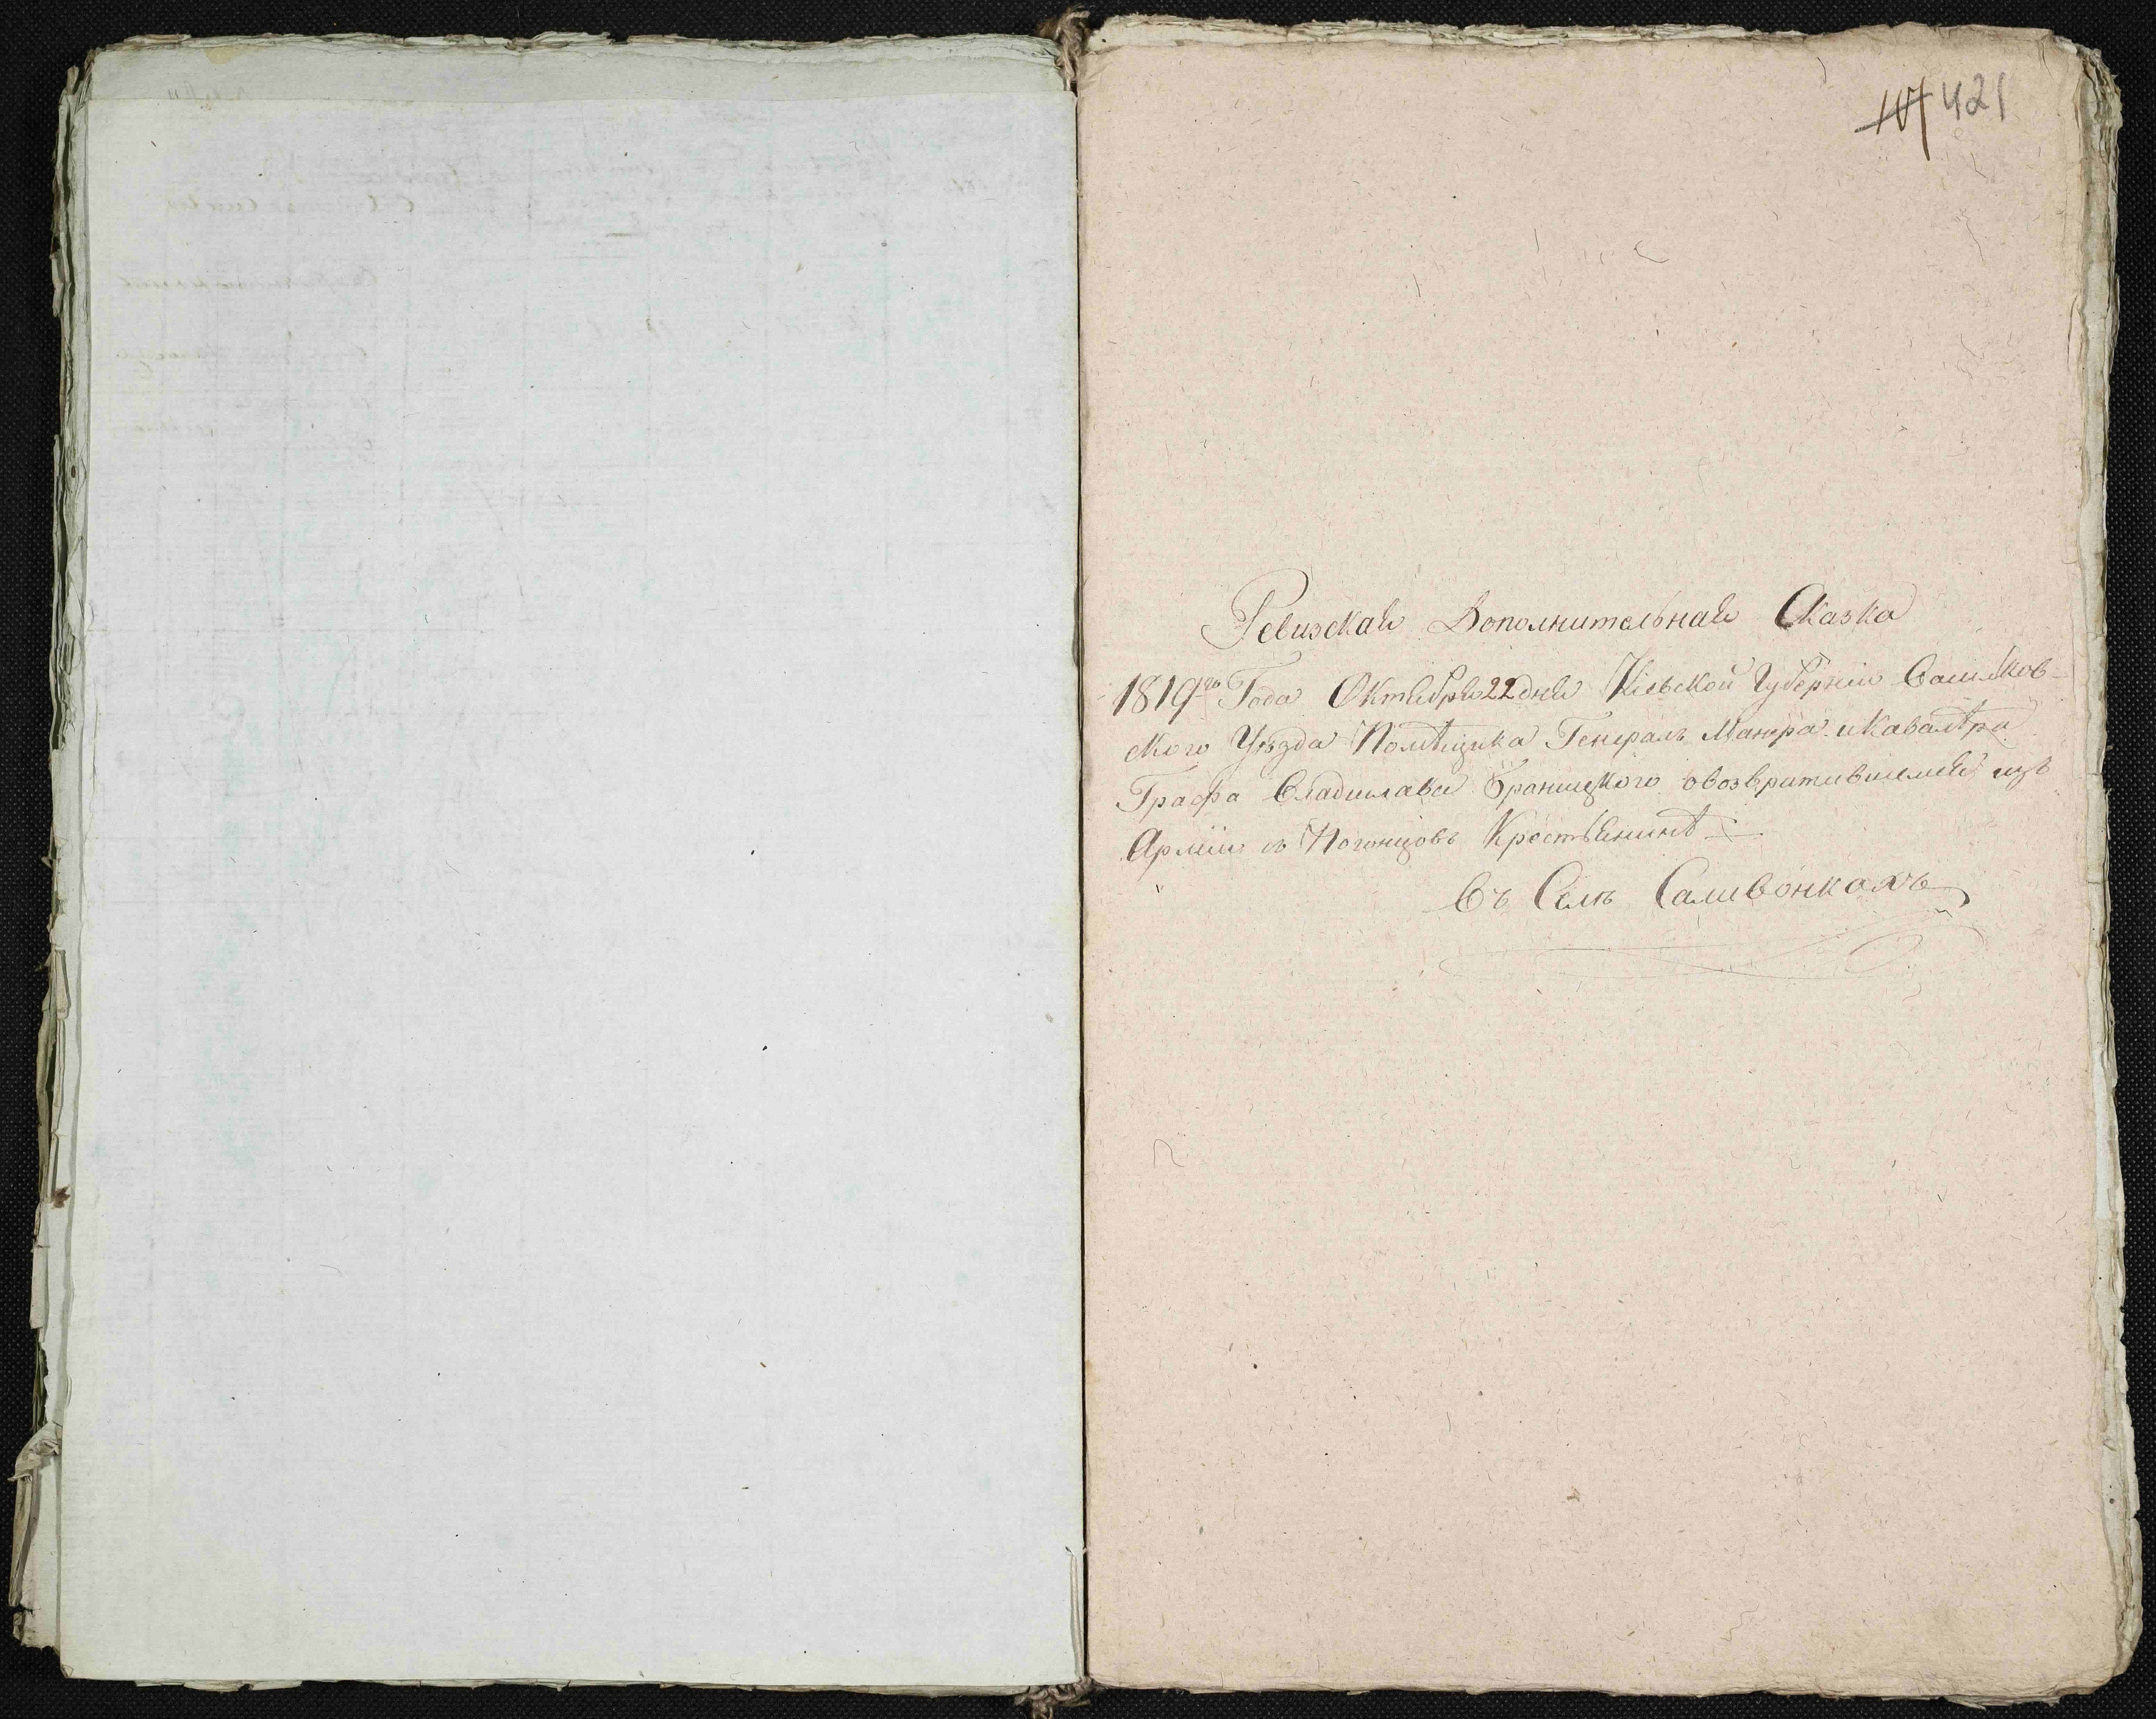 421
Ревизская Дополнительная Сказка
1819го Года Октября 22 дня Кіевской Губерніи Васильков-
ского Уѣзда Помѣщика Генералъ Маіора и Кавалѣра
Графа Владислава Браницкого о возвратившемся изъ
Арміи съ Погонцовъ Крестьянинѣ
Въ Селѣ Саливонкахъ